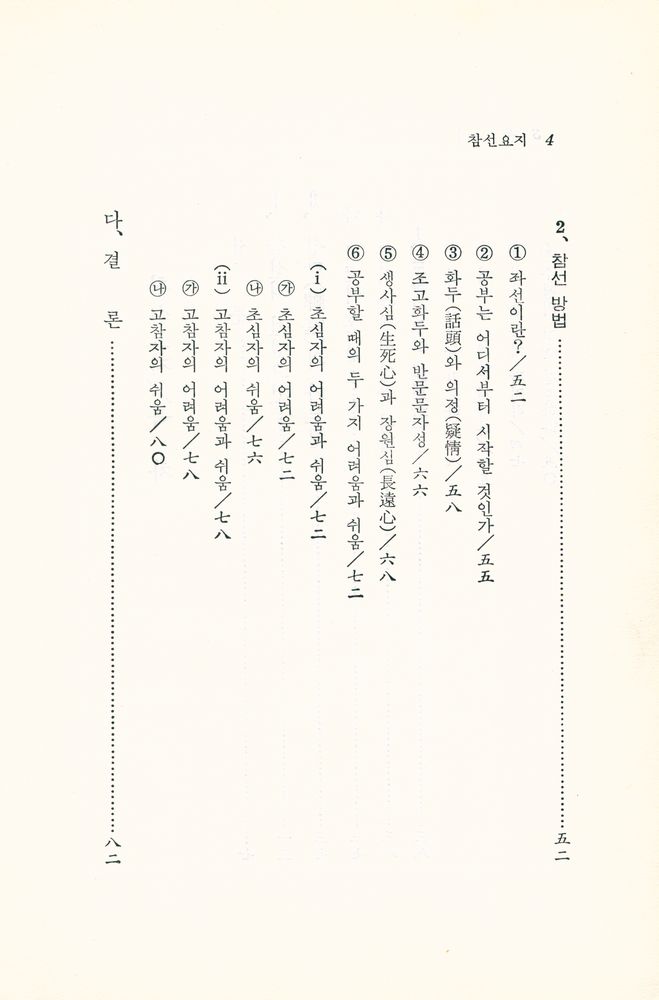 참선요지 4
2、참선 방법 …… 五二
① 좌선이란?／五二
② 공부는 어디서부터 시작할 것인가／五五
③ 화두(話頭)와 의정(疑情)／五八
④ 조고화두와 반문문자성／六六
⑤ 생사심(生死心)과 장원심(長遠心)／六八
⑥ 공부할 때의 두 가지 어려움과 쉬움／七二
(ⅰ) 초심자의 어려움과 쉬움／七二
㉮ 초심자의 어려움／七二
㉯ 초심자의 쉬움／七六
(ⅱ) 고참자의 어려움과 쉬움／七八
㉮ 고참자의 어려움／七八
㉯ 고참자의 쉬움／八〇
다、결 론 …… 八二